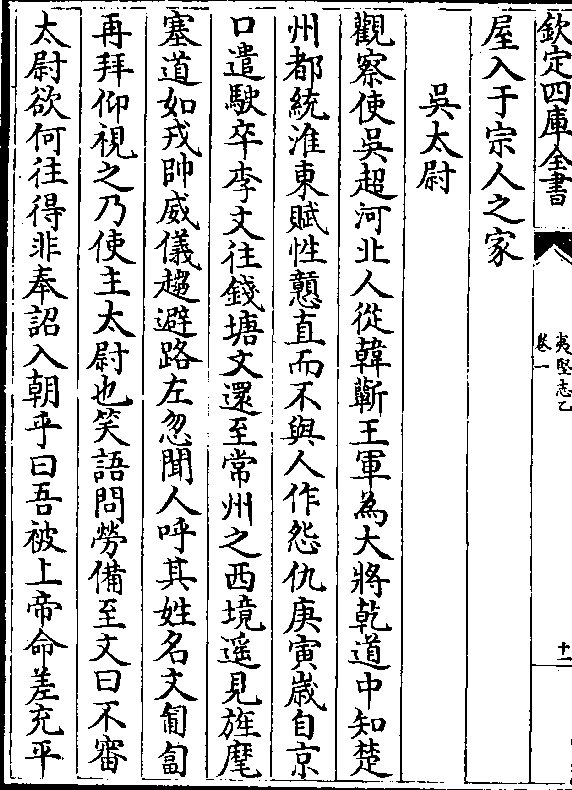 欽定四庫全書
夷堅志乙
卷一
十一
屋入于宗人之家
吳太尉
觀察使吳超河北人從韓蘄王軍為大將乾道中知楚
州都統淮東賦性戇直而不與人作怨仇庚寅嵗自京
口遣駛卒李文往錢塘文還至常州之西境遥見旌麾
塞道如戎帥威儀趨避路左忽聞人呼其姓名文匍匐
再拜仰視之乃使主太尉也笑語問勞備至文曰不審
太尉欲何往得非奉詔入朝乎曰吾被上帝命差充平